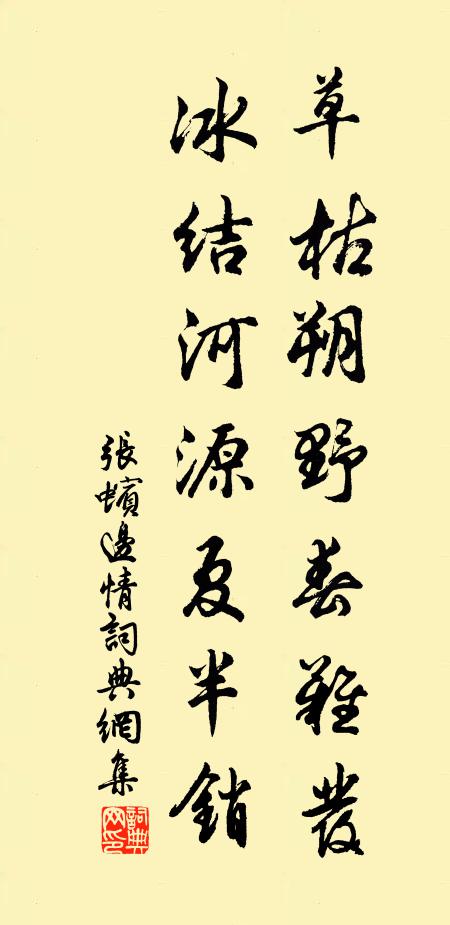 草枯朔野春難發
冰結河源夏半銷
張蠙邊情詞典網集
詞典网印